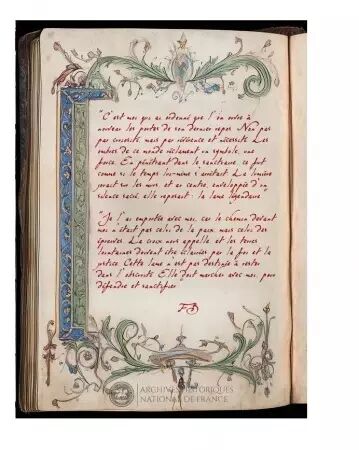 "C'est moi qui ai ordonné que l'on ouvre à
nouveau les portes de son dernier repos. Non pas
par curiosité, mais par révérence et nécessité. Les
ombres de ce monde réclamaient un symbole, une
force. En pénétrant dans le sanctuaire, ce fut
comme si le temps lui-même s'arrêtait. La lumière
jouait sur les murs, et au centre, enveloppée d'un
silence sacré, elle reposait : la lame légendaire.
"Je l'ai emportée avec moi, car le chemin devant
moi n'était pas celui de la paix, mais celui des
épreuves. La croix nous appelle, et les terres
lointaines doivent être éclairées par la foi et la
justice. Cette lame n'est pas destinée à rester
dans l'obscurité. Elle doit marcher avec moi, pour
défendre et sanctifier."
FB
ARCHIVES HISTORIQUES
NATIONAL DE FRANCE